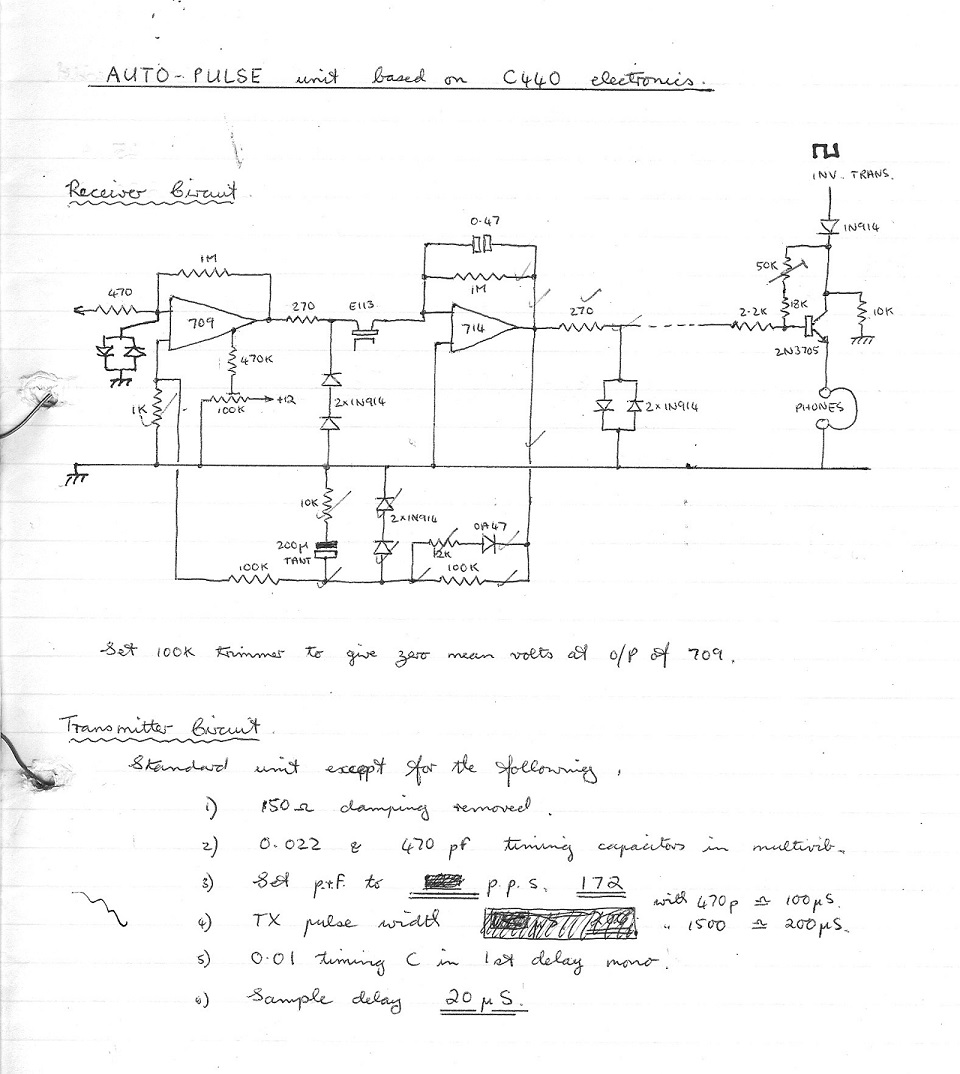 AUTO-PULSE unit based on C440 electronics.
Receiver Circuit
INV. TRANS.
1N914
0.47
1M
1M
50K
470
270
E113
270
18K
10K
709
714
2.2K
2N3705
470K
+12
100K
1K
2x1N914
2x1N914
PHONES
10K
2x1N914
OA47
200µ
TANT
12K
100K
100K
Set 100K trimmer to give zero mean volts at O/P of 709.
Transmitter Circuit
Standard unit except for the following,
1) 150Ω damping removed.
2) 0.022 & 470 pf timing capacitors in multivib.
3) Set p.r.f. to p.p.s. 172
with 470p ≏ 100µS.
4) TX pulse width
" 1500 ≏ 200µS.
5) 0.01 timing C in 1st delay mono.
6) Sample delay 20 µS.